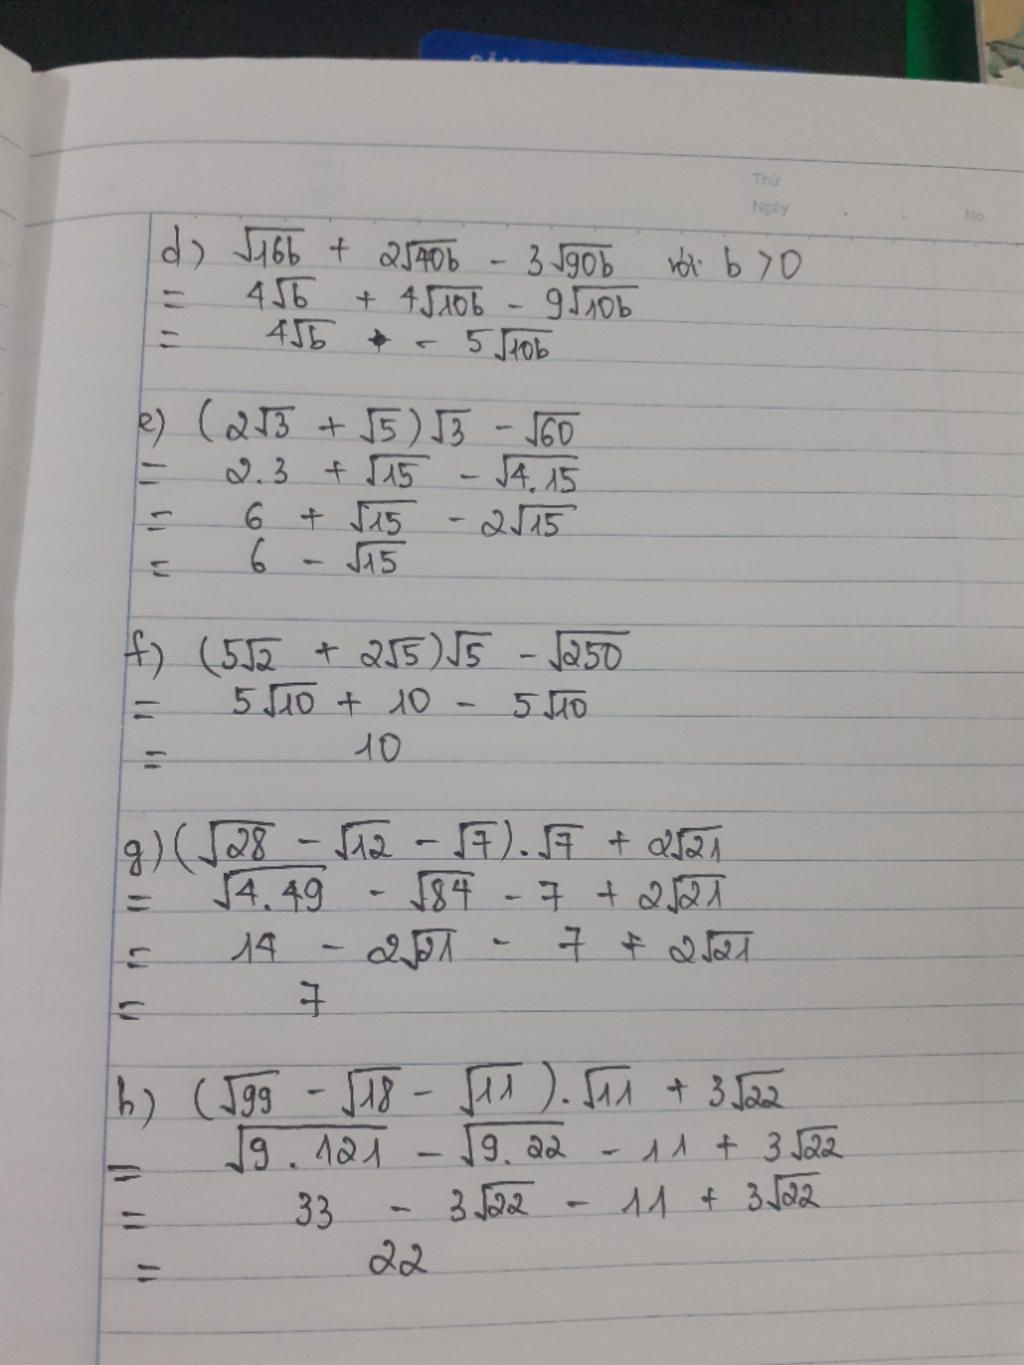 Thứ
Ngày No.
d) √16b + 2√40b - 3√90b với b > 0
= 4√b + 4√10b - 9√10b
= 4√b - 5√10b
e) (2√3 + √5)√3 - √60
= 2.3 + √15 - √4.15
= 6 + √15 - 2√15
= 6 - √15
f) (5√2 + 2√5)√5 - √250
= 5√10 + 10 - 5√10
= 10
g) (√28 - √12 - √7).√7 + 2√21
= √4.49 - √84 - 7 + 2√21
= 14 - 2√21 - 7 + 2√21
= 7
h) (√99 - √18 - √11).√11 + 3√22
= √9.121 - √9.22 - 11 + 3√22
= 33 - 3√22 - 11 + 3√22
= 22